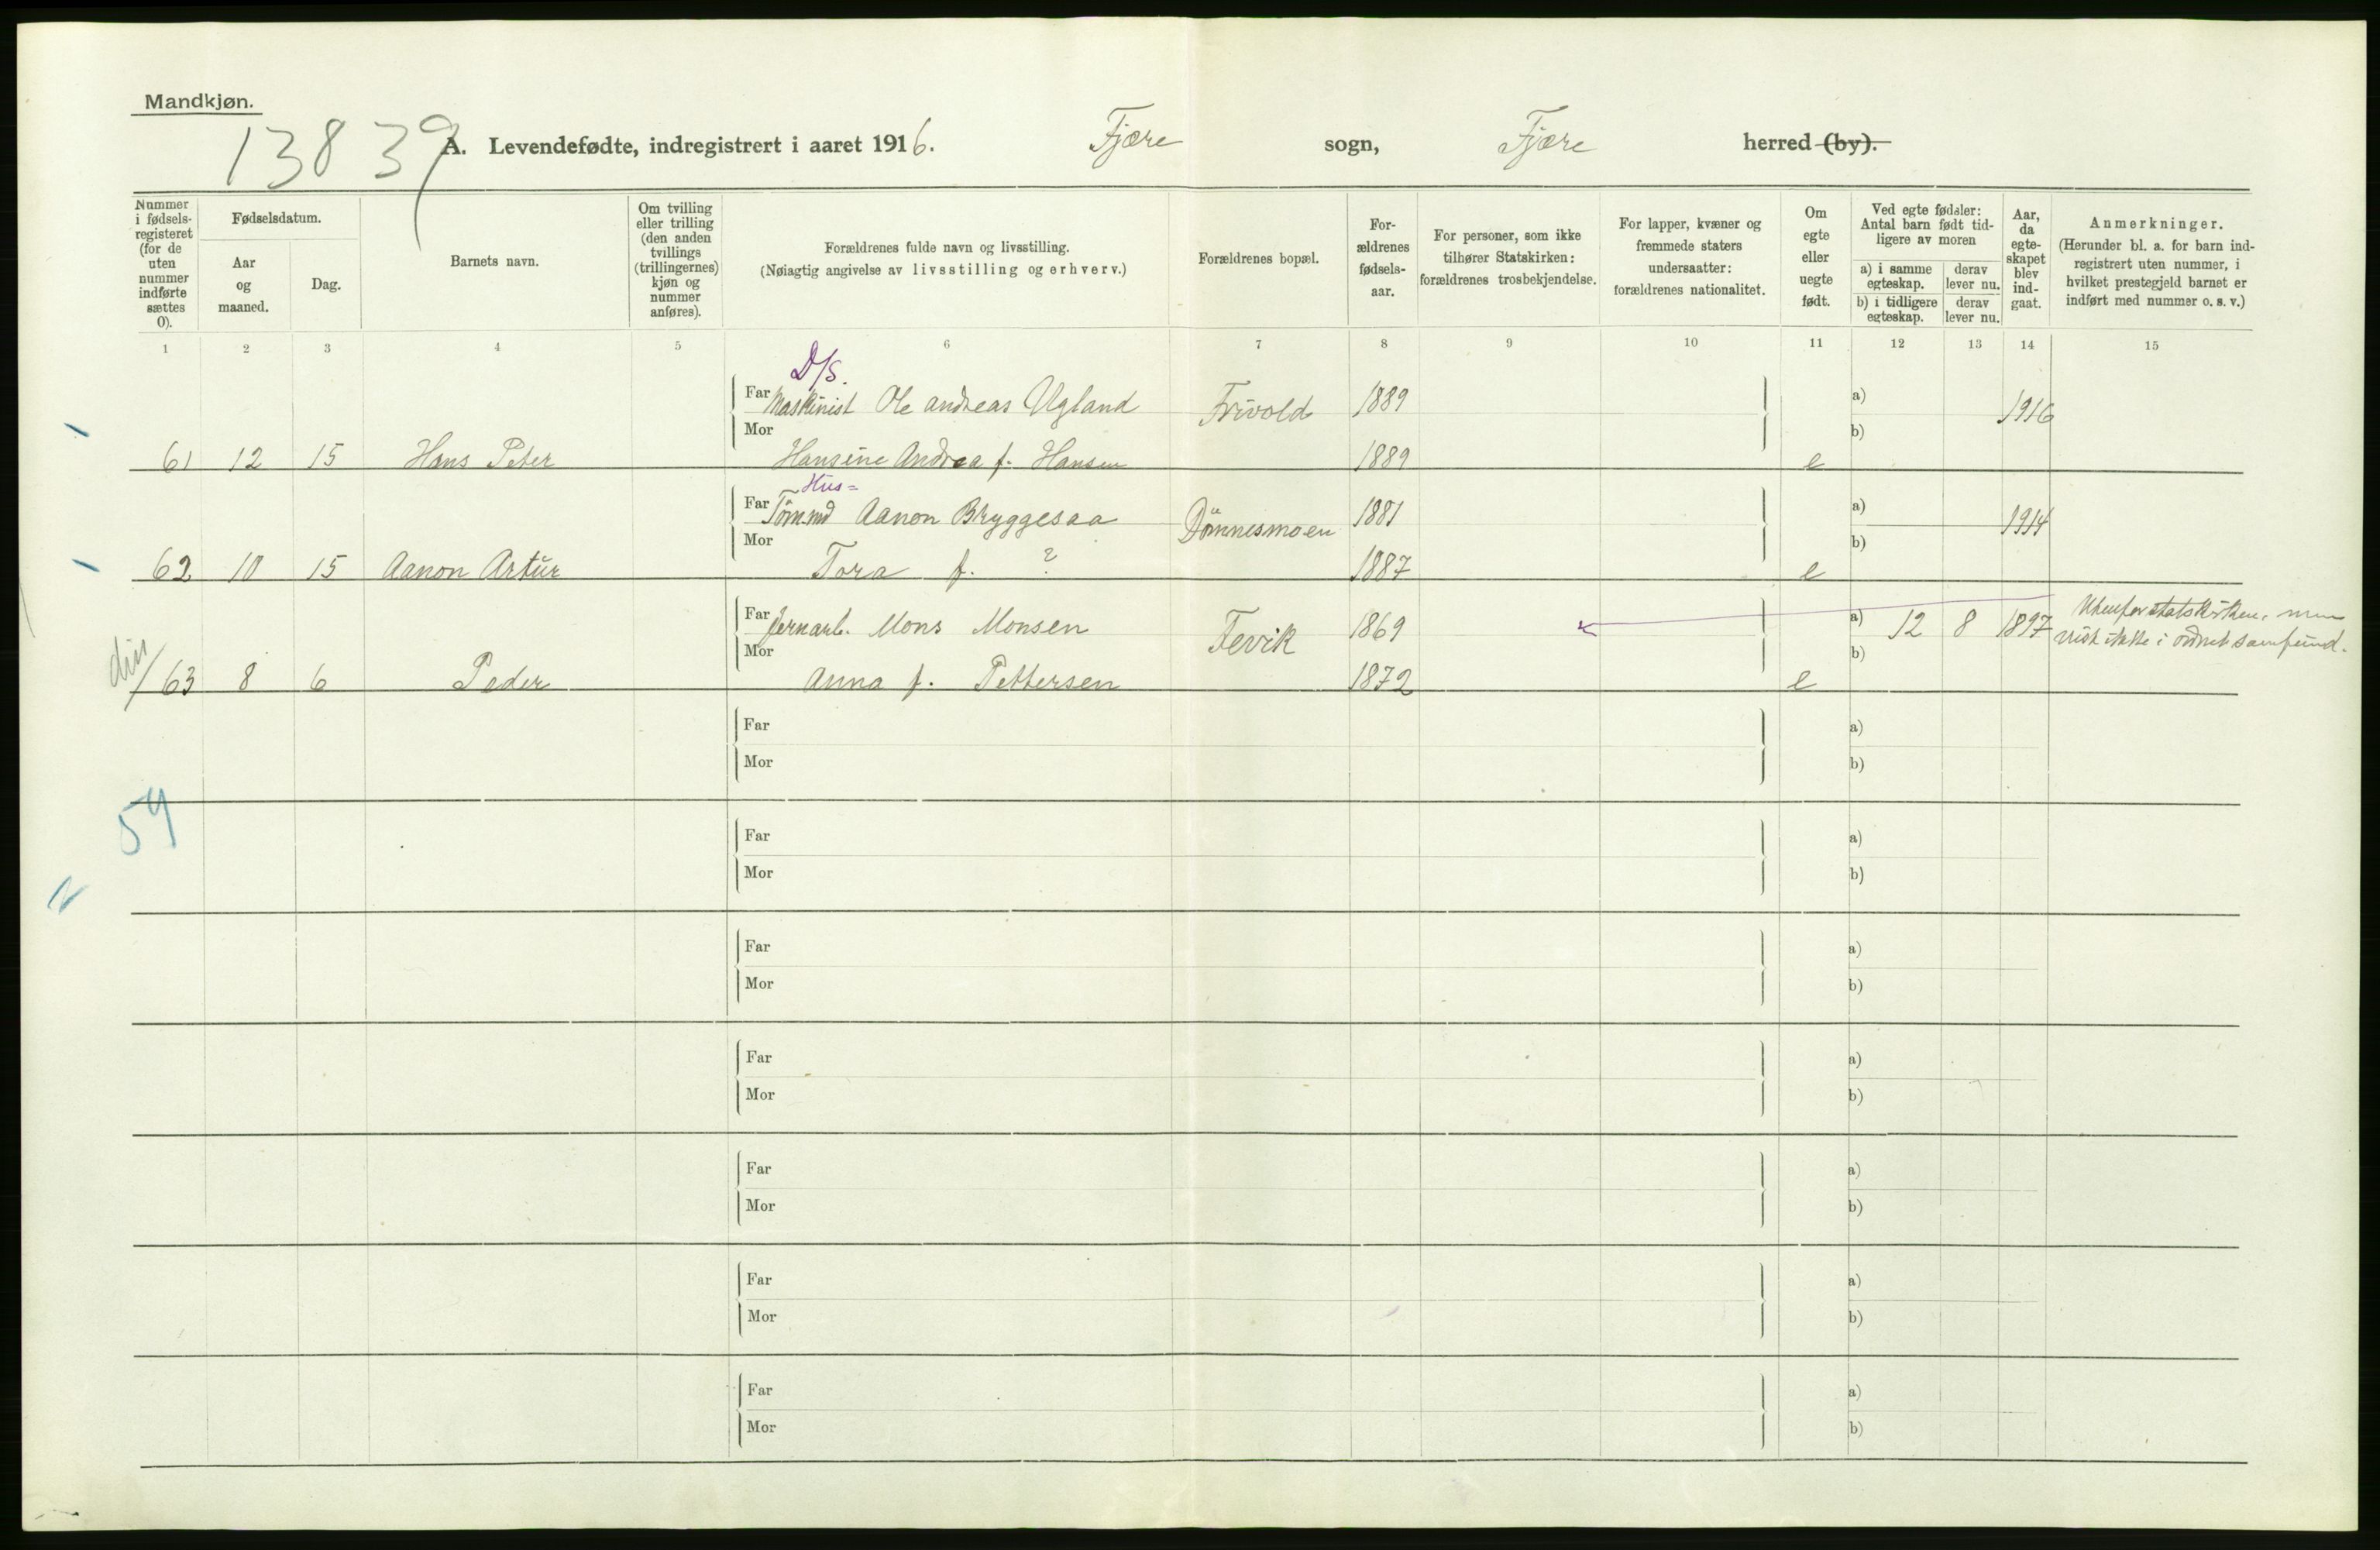 Mandkjøn.
13839
A. Levendefødte, indregistrert i aaret 1916. Fjære sogn, Fjære herred (by).
Nummer i fødsels-registeret (for de uten nummer indførte sættes 0).
Fødselsdatum.
Aar og maaned.
Dag.
Barnets navn.
Om tvilling eller trilling (den anden tvillings (trillingernes) kjøn og nummer anføres).
Forældrenes fulde navn og livsstilling.
(Nøiagtig angivelse av livsstilling og erhverv.)
Forældrenes bopæl.
For-ældrenes fødsels-aar.
For personer, som ikke tilhører Statskirken: forældrenes trosbekjendelse.
For lapper, kvæner og fremmede staters undersaatter: forældrenes nationalitet.
Om egte eller uegte født.
Ved egte fødsler: Antal barn født tid-ligere av moren
a) i samme egteskap.
derav lever nu.
b) i tidligere egteskap.
derav lever nu.
Aar, da egte-skapet blev ind-gaat.
Anmerkninger.
(Herunder bl. a. for barn ind-registrert uten nummer, i hvilket prestegjeld barnet er indført med nummer o. s. v.)
1 2 3 4 5 6 7 8 9 10 11 12 13 14 15
D/S.
Far Maskinist Ole Andreas Ugland Frivold 1889 a) 1916
Mor b)
61 12 15 Hans Peter Hansine Andrea f. Hansen 1889 e
Hus=
Far Tømmd Aanon Bryggesaa Dømmesmoen 1881 a) 1914
Mor b)
62 10 15 Aanon Artur Tora f. ? 1887 e
Far Jernarb. Mons Monsen Fevik 1869 a) 12 8 1897 Utenfor statskirken, men
Mor b) vist ikke i ordnet samfund.
63 8 6 Peder Anna f. Pettersen 1872 e
Far a)
Mor b)
54
Far a)
Mor b)
Far a)
Mor b)
Far a)
Mor b)
Far a)
Mor b)
Far a)
Mor b)
Far a)
Mor b)